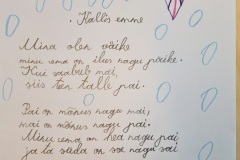 Kallis emme
Mina olen väike
minu ema on ilus nagu päike.
Kui saabub mai,
siis teen talle pai.
Pai on mõnus nagu mai,
mai on mõnus nagu pai.
Minu ema on hea nagu pai
ja ta süda on soe nagu sai